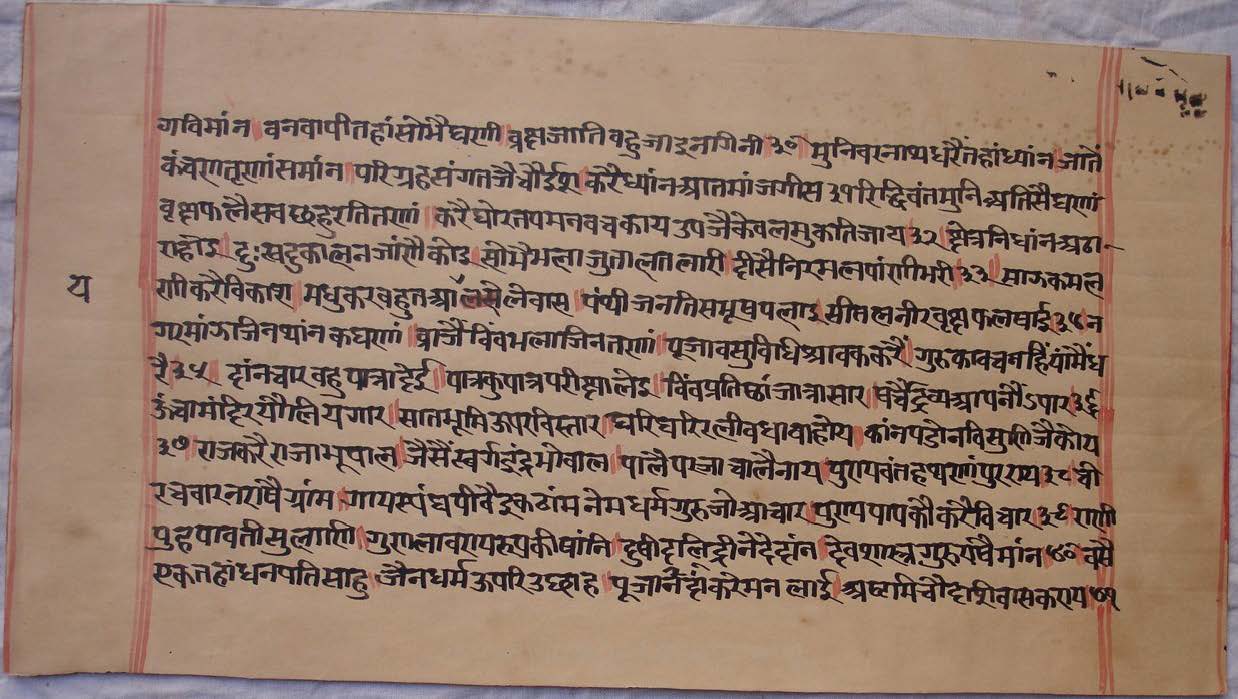 गविमांन वनवापीतहांसोभैघणी वृक्षजातिबहुजाइनगिनी ३० मुनिवरनाथधरैंतहांध्यांन जानें
कंचणतृणसमांन परिग्रहसंगतजैचौईश करैध्यांनआतमांजगीस ३१ रिद्धिवंतमुनिअतिसैघणां
वृक्षफलैसबछहुरतितणां करैघोरतपमनवचकाय उपजैकेवलमुकतिजाय ३२ अढा-
राहोइ दुःखदुकालनजांणैकोइ सोभैभला दीसैनिरमलपांणीभरी ३३ कमल
णीकरैविकाश मधुकरबहुत लेवास पंथीजनति सीतलनीरवृक्षफलषाई ३४ न
गरमांझजिनथांनकघणां राजैबिंबभलाजिनतणां पूजावसुविधिश्रावककरैं गुरुकावचनहियांमैंध
रै ३५ दांनच्यारबहुपात्रांदेई पात्रकुपात्रपरीक्षालेइ बिंबप्रतिष्ठाजात्रासार षर्चैद्रव्यआपनौऽपार ३६
ऊंचामंदिर सातभूमिऊपरविस्तार घरिघरिरलीबधावाहोय कांनपडोनविसुणिजैकोय
३७ राजकरैराजाभूपाल जैसैंस्वर्गइंद्रभोवाल पालैपरजाचालैनाय पुण्यवंतहथणांपुरराय ३८ ची
रचबार राषैग्रांम गायस्यंघपीवैइकठांम नेमधर्मगुरुजोआचार पुण्यपापकौकरैविचार ३९ राणी
पुहपावतीसुलाणी गुणलावण्यरूपकीषांनि दुषीदलिद्रीनेदेदांन देवशास्त्रगुरुराषैमांन ४० वसै
एकतहांधनपतिसाहु जैनधर्मऊपरिउछाह पूजा करैमनलाई अष्टमिचौदशिवासकराय ४१
य